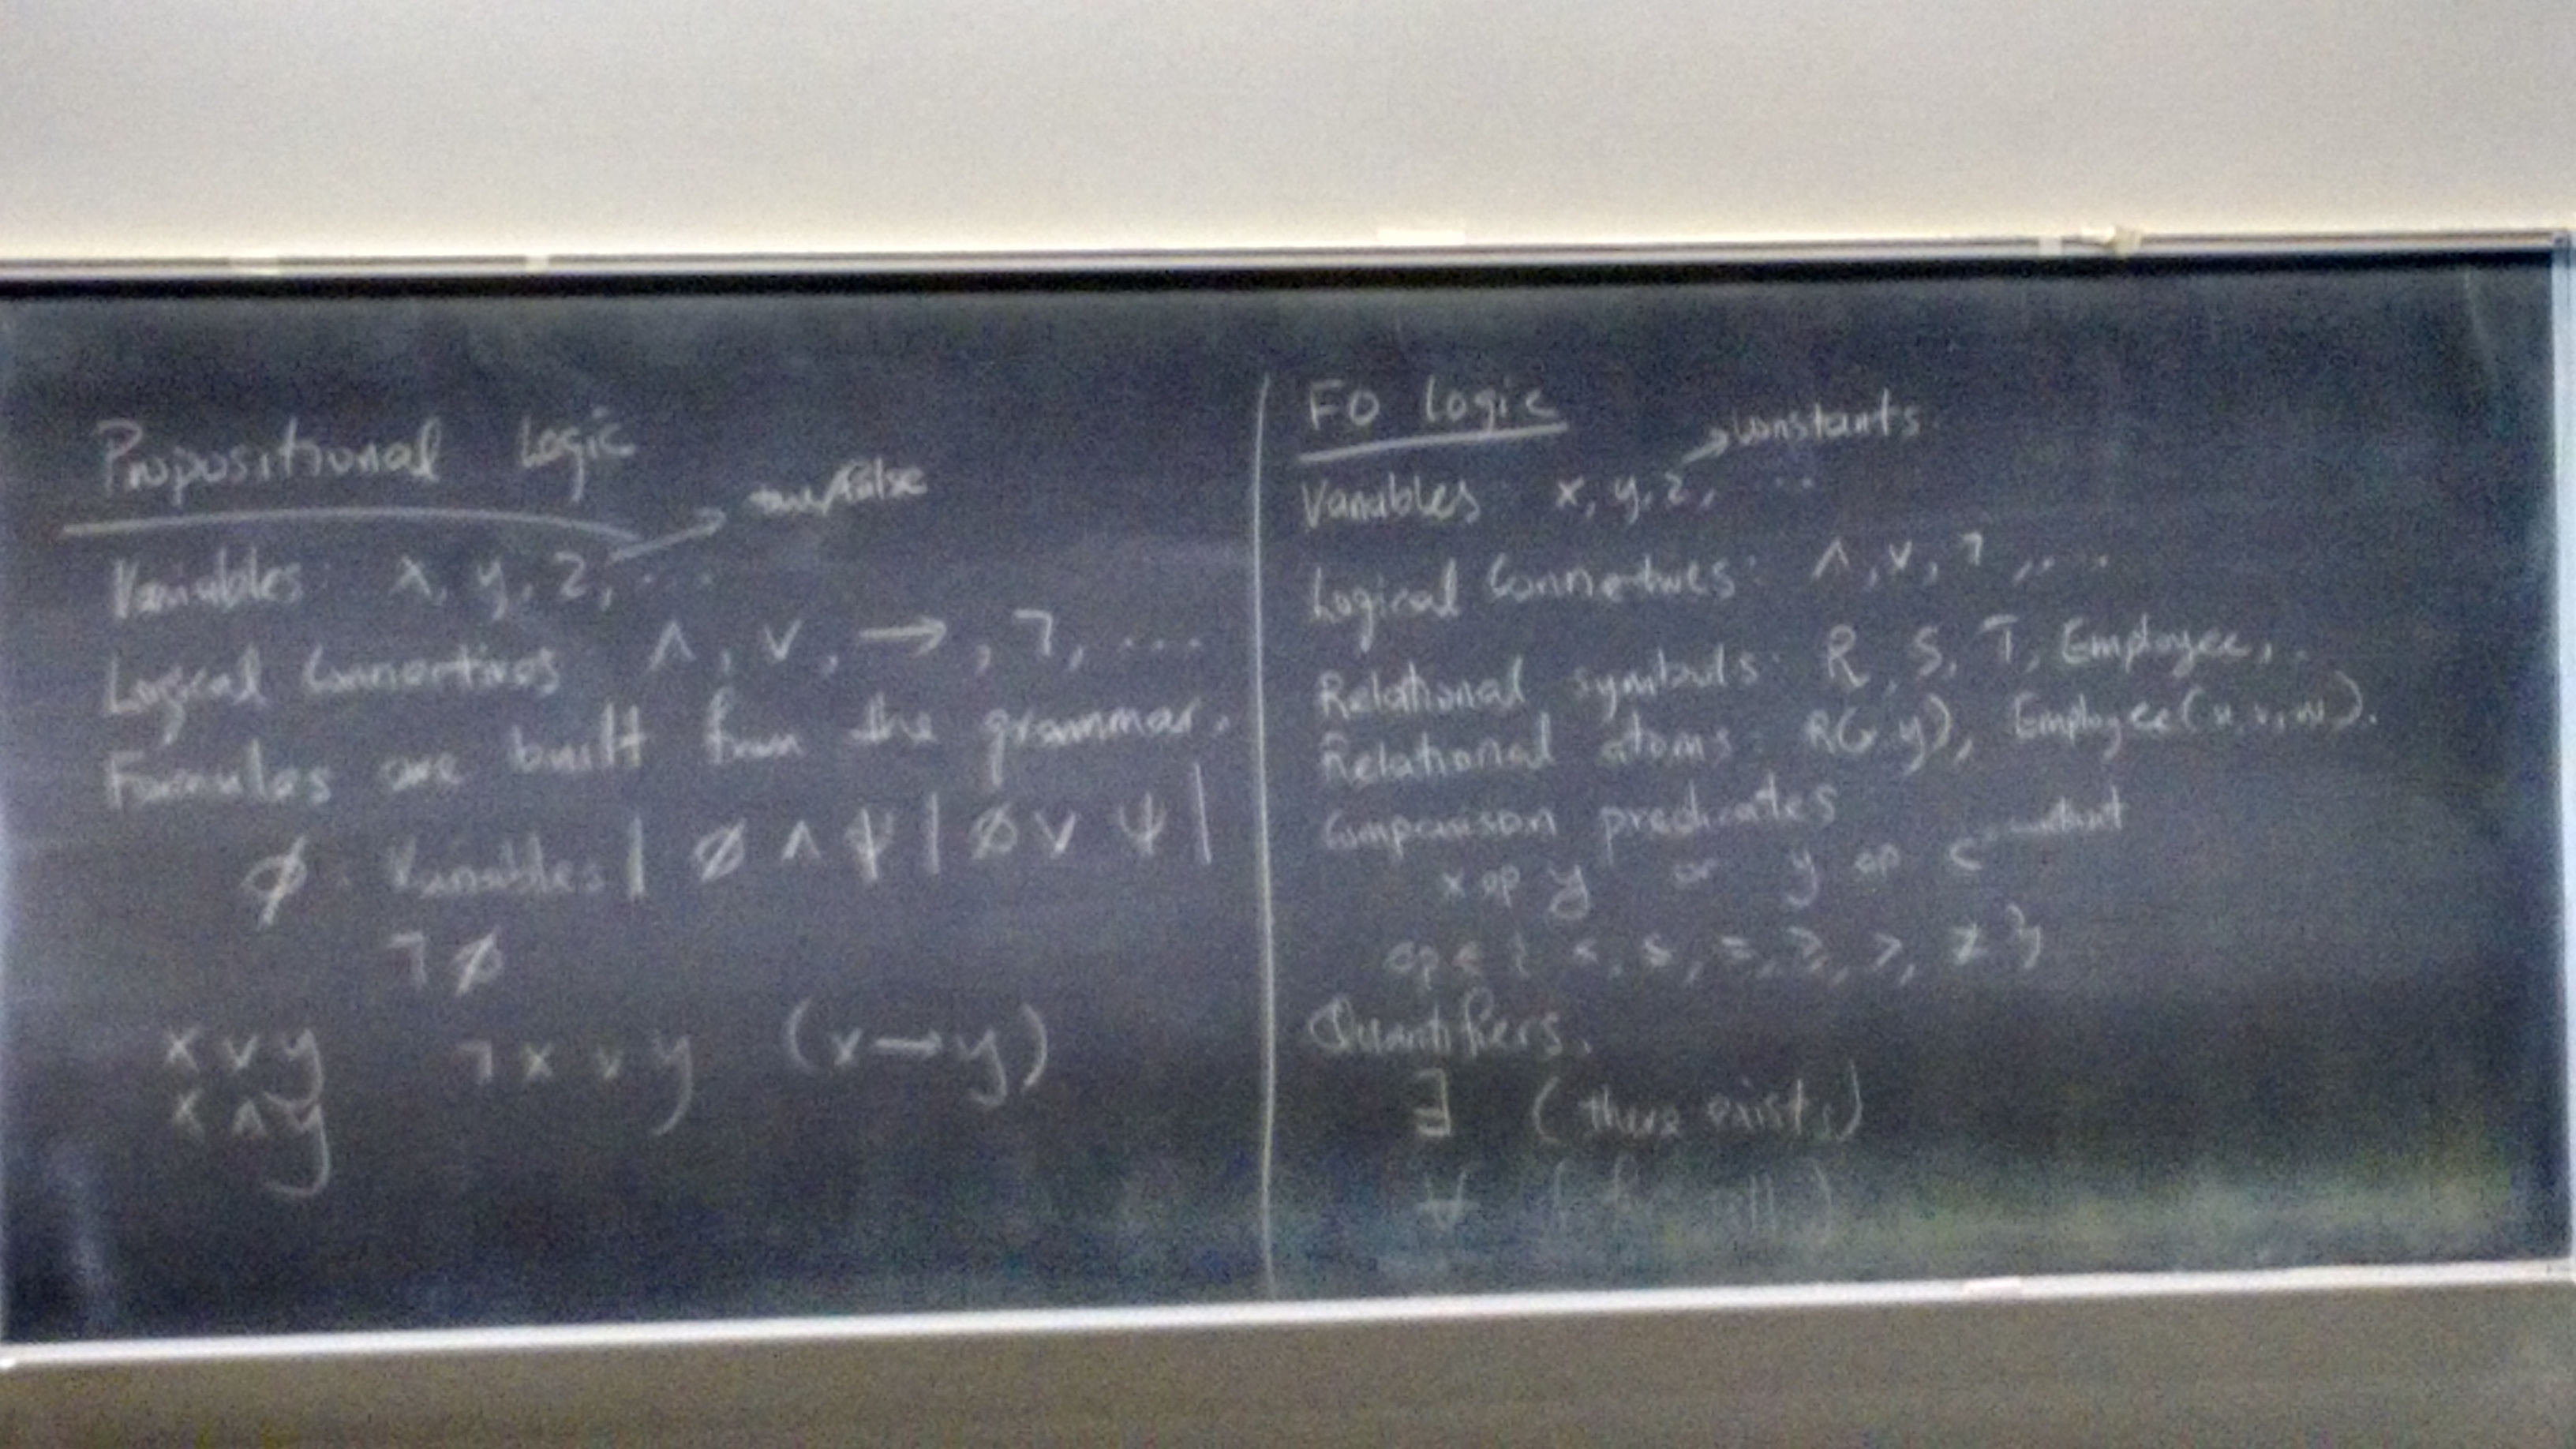 Propositional Logic
true/false
Variables: x, y, z, ...
Logical Connectives ∧, ∨, →, ¬, ....
Formulas are built from the grammar.
ϕ : Variables | ϕ ∧ ψ | ϕ ∨ ψ |
¬ϕ
x ∨ y ¬x ∨ y (x → y)
x ∧ y
FO Logic
constants
Variables x, y, z, ...
Logical Connectives: ∧, ∨, ¬, ....
Relational symbols: R, S, T, Employee, ..
Relational atoms: R(x,y), Employee(u,v,w).
Comparison predicates
constant
x op y or y op c
op ∈ { <, ≤, =, ≥, >, ≠ }
Quantifiers.
∃ (there exists)
∀ (for all)